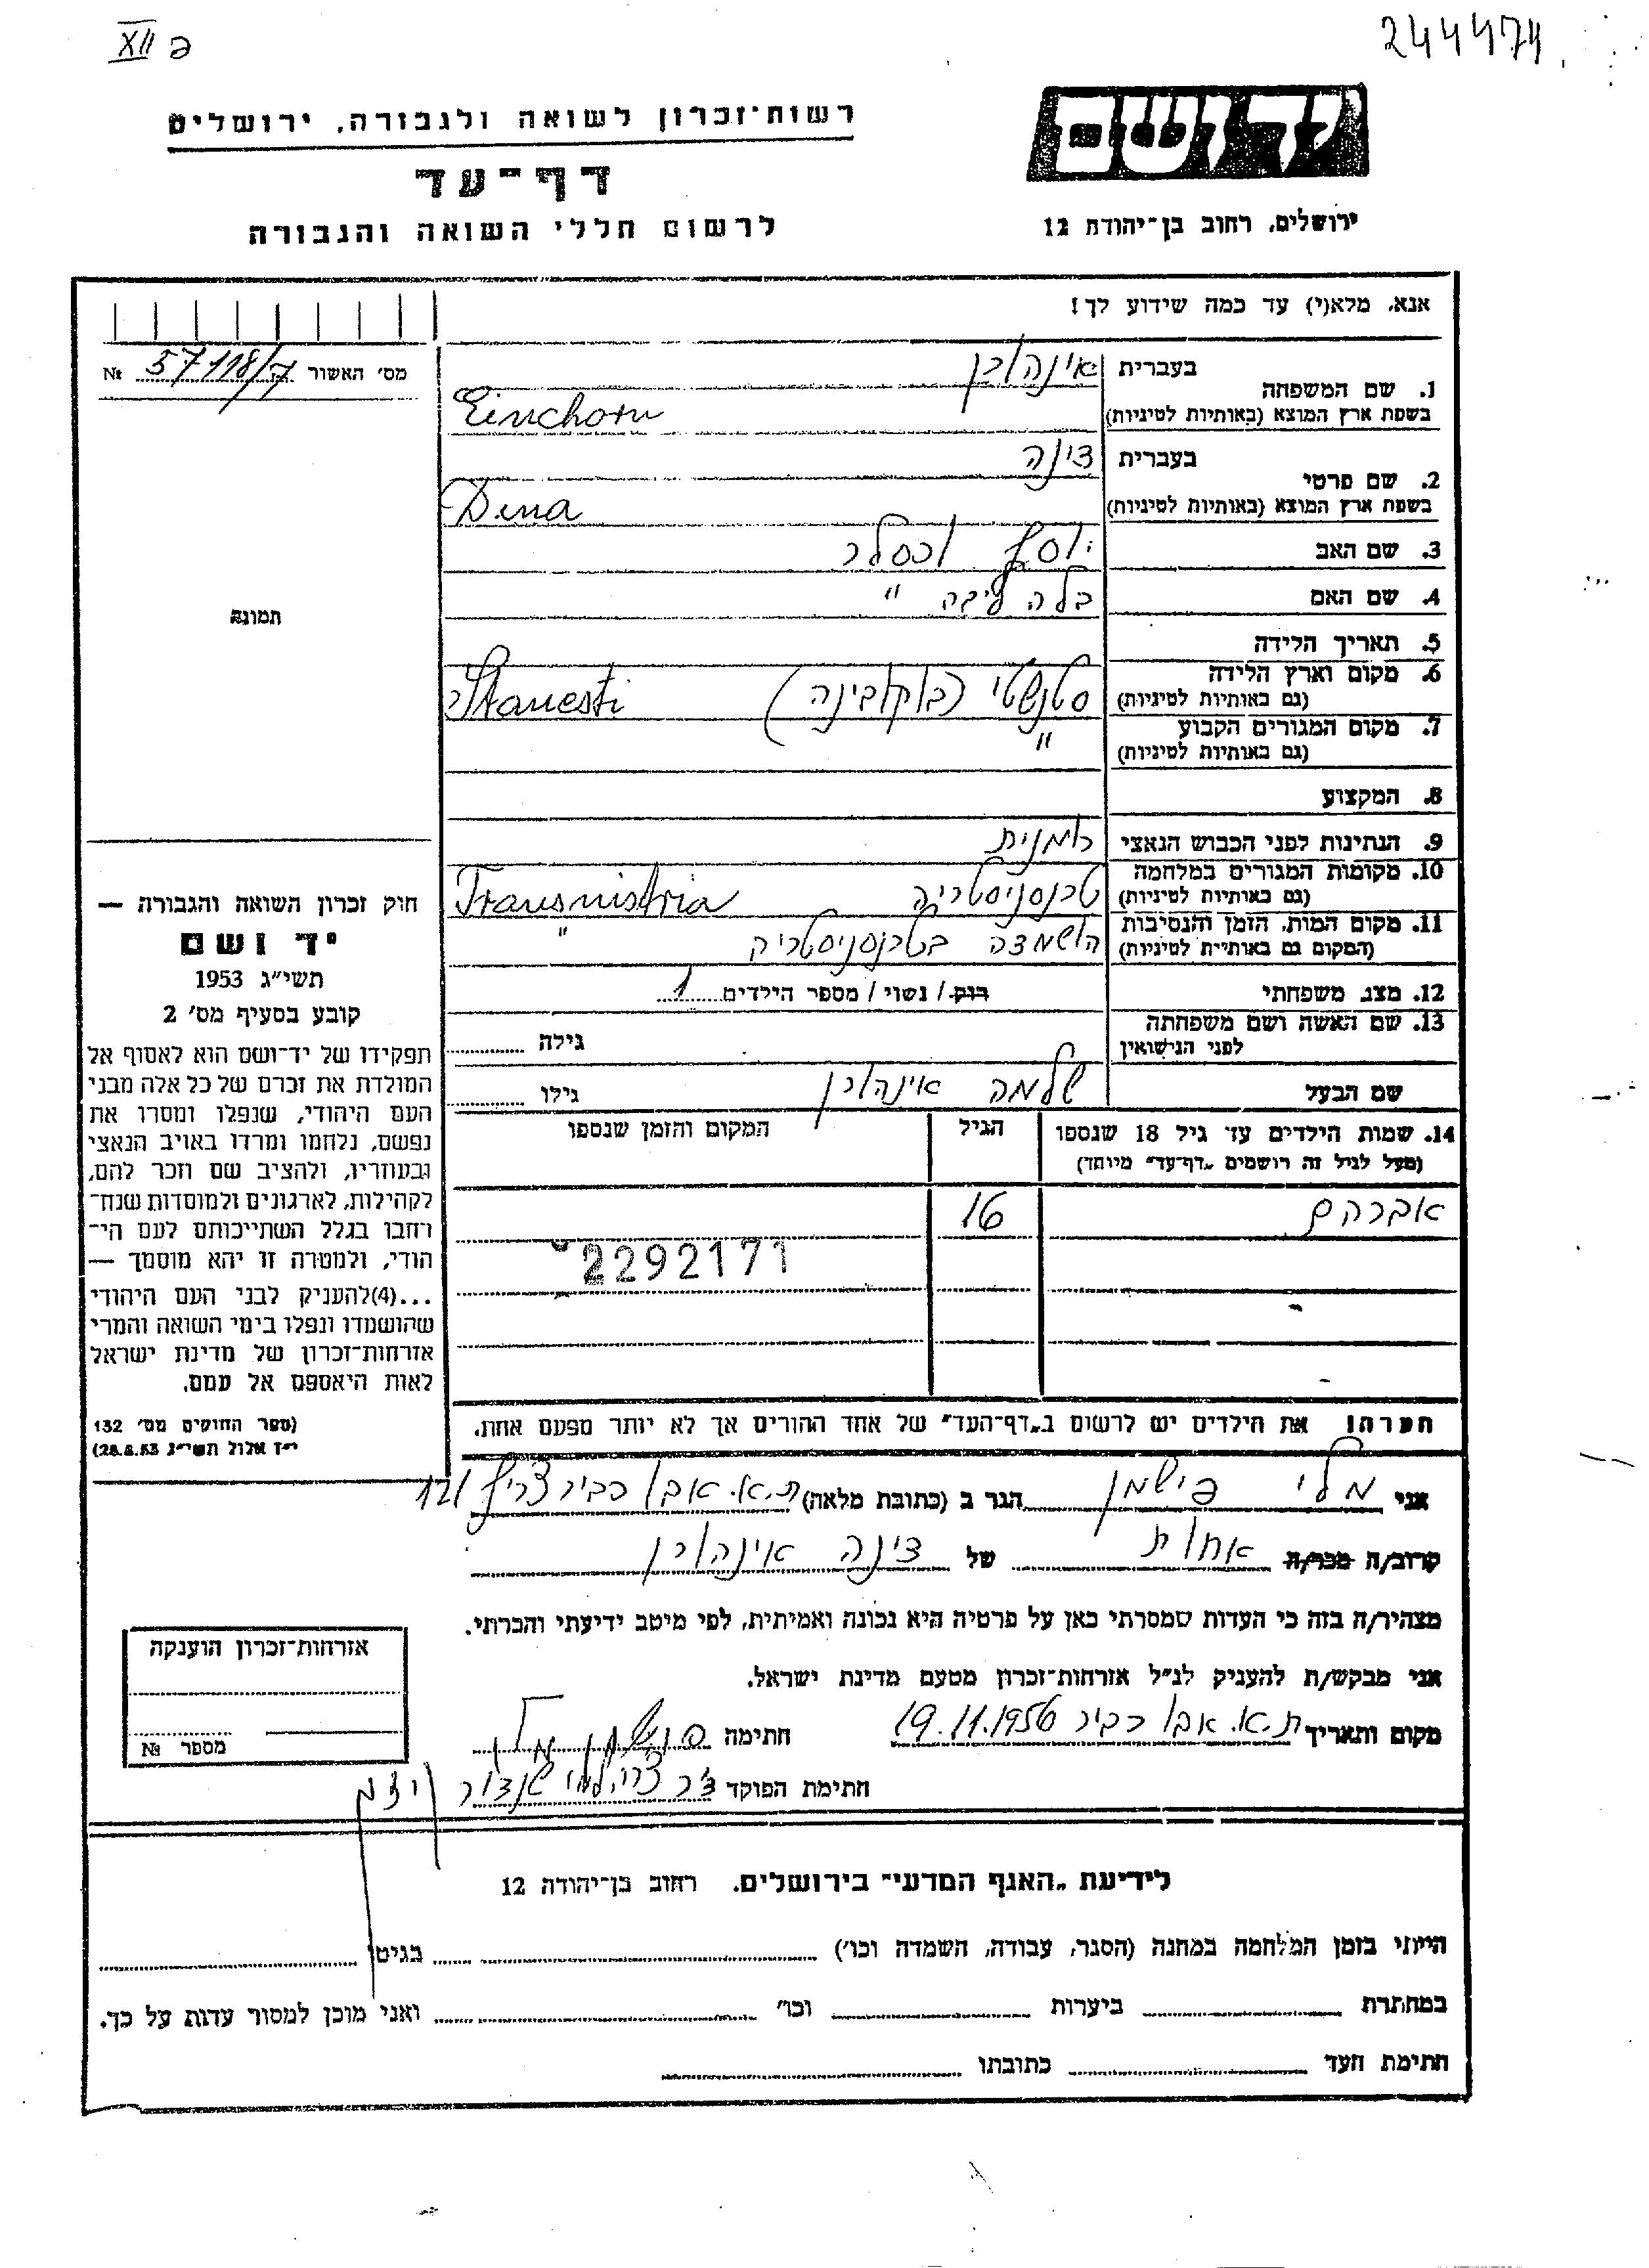 244474
XII פ
יד ושם
ירושלים, רחוב בן־יהודה 12
רשות־זכרון לשואה ולגבורה, ירושלים
דף־עד
לרשום חללי השואה והגבורה
אנא, מלא(י) עד כמה שידוע לך!
מס׳ האשור 57118/7 №
תמונה
1. שם המשפחה
בעברית אינהורן
בשפת ארץ המוצא (באותיות לטיניות) Einchorn
2. שם פרטי
בעברית דינה
בשפת ארץ המוצא (באותיות לטיניות) Dina
3. שם האב יוסף וכסלר
4. שם האם בלה ליבה "
5. תאריך הלידה
6. מקום וארץ הלידה סטנשטי (בוקובינה) Stanesti
(גם באותיות לטיניות)
7. מקום המגורים הקבוע "
(גם באותיות לטיניות)
8. המקצוע
9. הנתינות לפני הכבוש הנאצי רומנית
10. מקומות המגורים במלחמה טרנסניסטריה Transnistria
(גם באותיות לטיניות)
11. מקום המות, הזמן והנסיבות הושמדה בטרנסניסטריה "
(המקום גם באותיית לטיניות)
12. מצב משפחתי רוק / נשוי / מספר הילדים 1
13. שם האשה ושם משפחתה
לפני הנישואין גילה
שם הבעל שלמה אינהורן גילו
14. שמות הילדים עד גיל 18 שנספו הגיל המקום והזמן שנספו
(מעל לגיל זה רושמים „דף־עד" מיוחד)
אברהם 16
2292171
הערה! את הילדים יש לרשום ב„דף־העד" של אחד ההורים אך לא יותר מפעם אחת.
חוק זכרון השואה והגבורה —
יד ושם
תשי״ג 1953
קובע בסעיף מס׳ 2
תפקידו של יד־ושם הוא לאסוף אל
המולדת את זכרם של כל אלה מבני
העם היהודי, שנפלו ומסרו את
נפשם, נלחמו ומרדו באויב הנאצי
ובעוזריו, ולהציב שם וזכר להם,
לקהילות, לארגונים ולמוסדות שנח־
רחבו בגלל השתייכותם לעם הי־
הודי, ולמטרה זו יהא מוסמך —
...(4)להעניק לבני העם היהודי
שהושמדו ונפלו בימי השואה והמרי
אזרחות־זכרון של מדינת ישראל
לאות היאספם אל עמם.
(ספר החוקים מס׳ 132
י״ז אלול תשי״ג 28.8.53)
אני מלי פישמן הגר ב (כתובת מלאה) ת.א. אבו כביר צריף 121
קרוב/ה מכר/ה אחות של דינה אינהורן
מצהיר/ה בזה כי העדות שמסרתי כאן על פרטיה היא נכונה ואמיתית, לפי מיטב ידיעתי והכרתי.
אני מבקש/ת להעניק לנ״ל אזרחות־זכרון מטעם מדינת ישראל.
מקום ותאריך ת.א. אבו כביר 19.11.1956 חתימה פישמן מלי
חתימת הפוקד
אזרחות־זכרון הוענקה
מספר №
לידיעת „האגף המדעי" בירושלים. רחוב בן־יהודה 12
הייתי בזמן המלחמה במחנה (הסגר, עבודה, השמדה וכו׳) בגיטו
במחתרת ביערות וכו׳ ואני מוכן למסור עדות על כך.
חתימת העד כתובתו